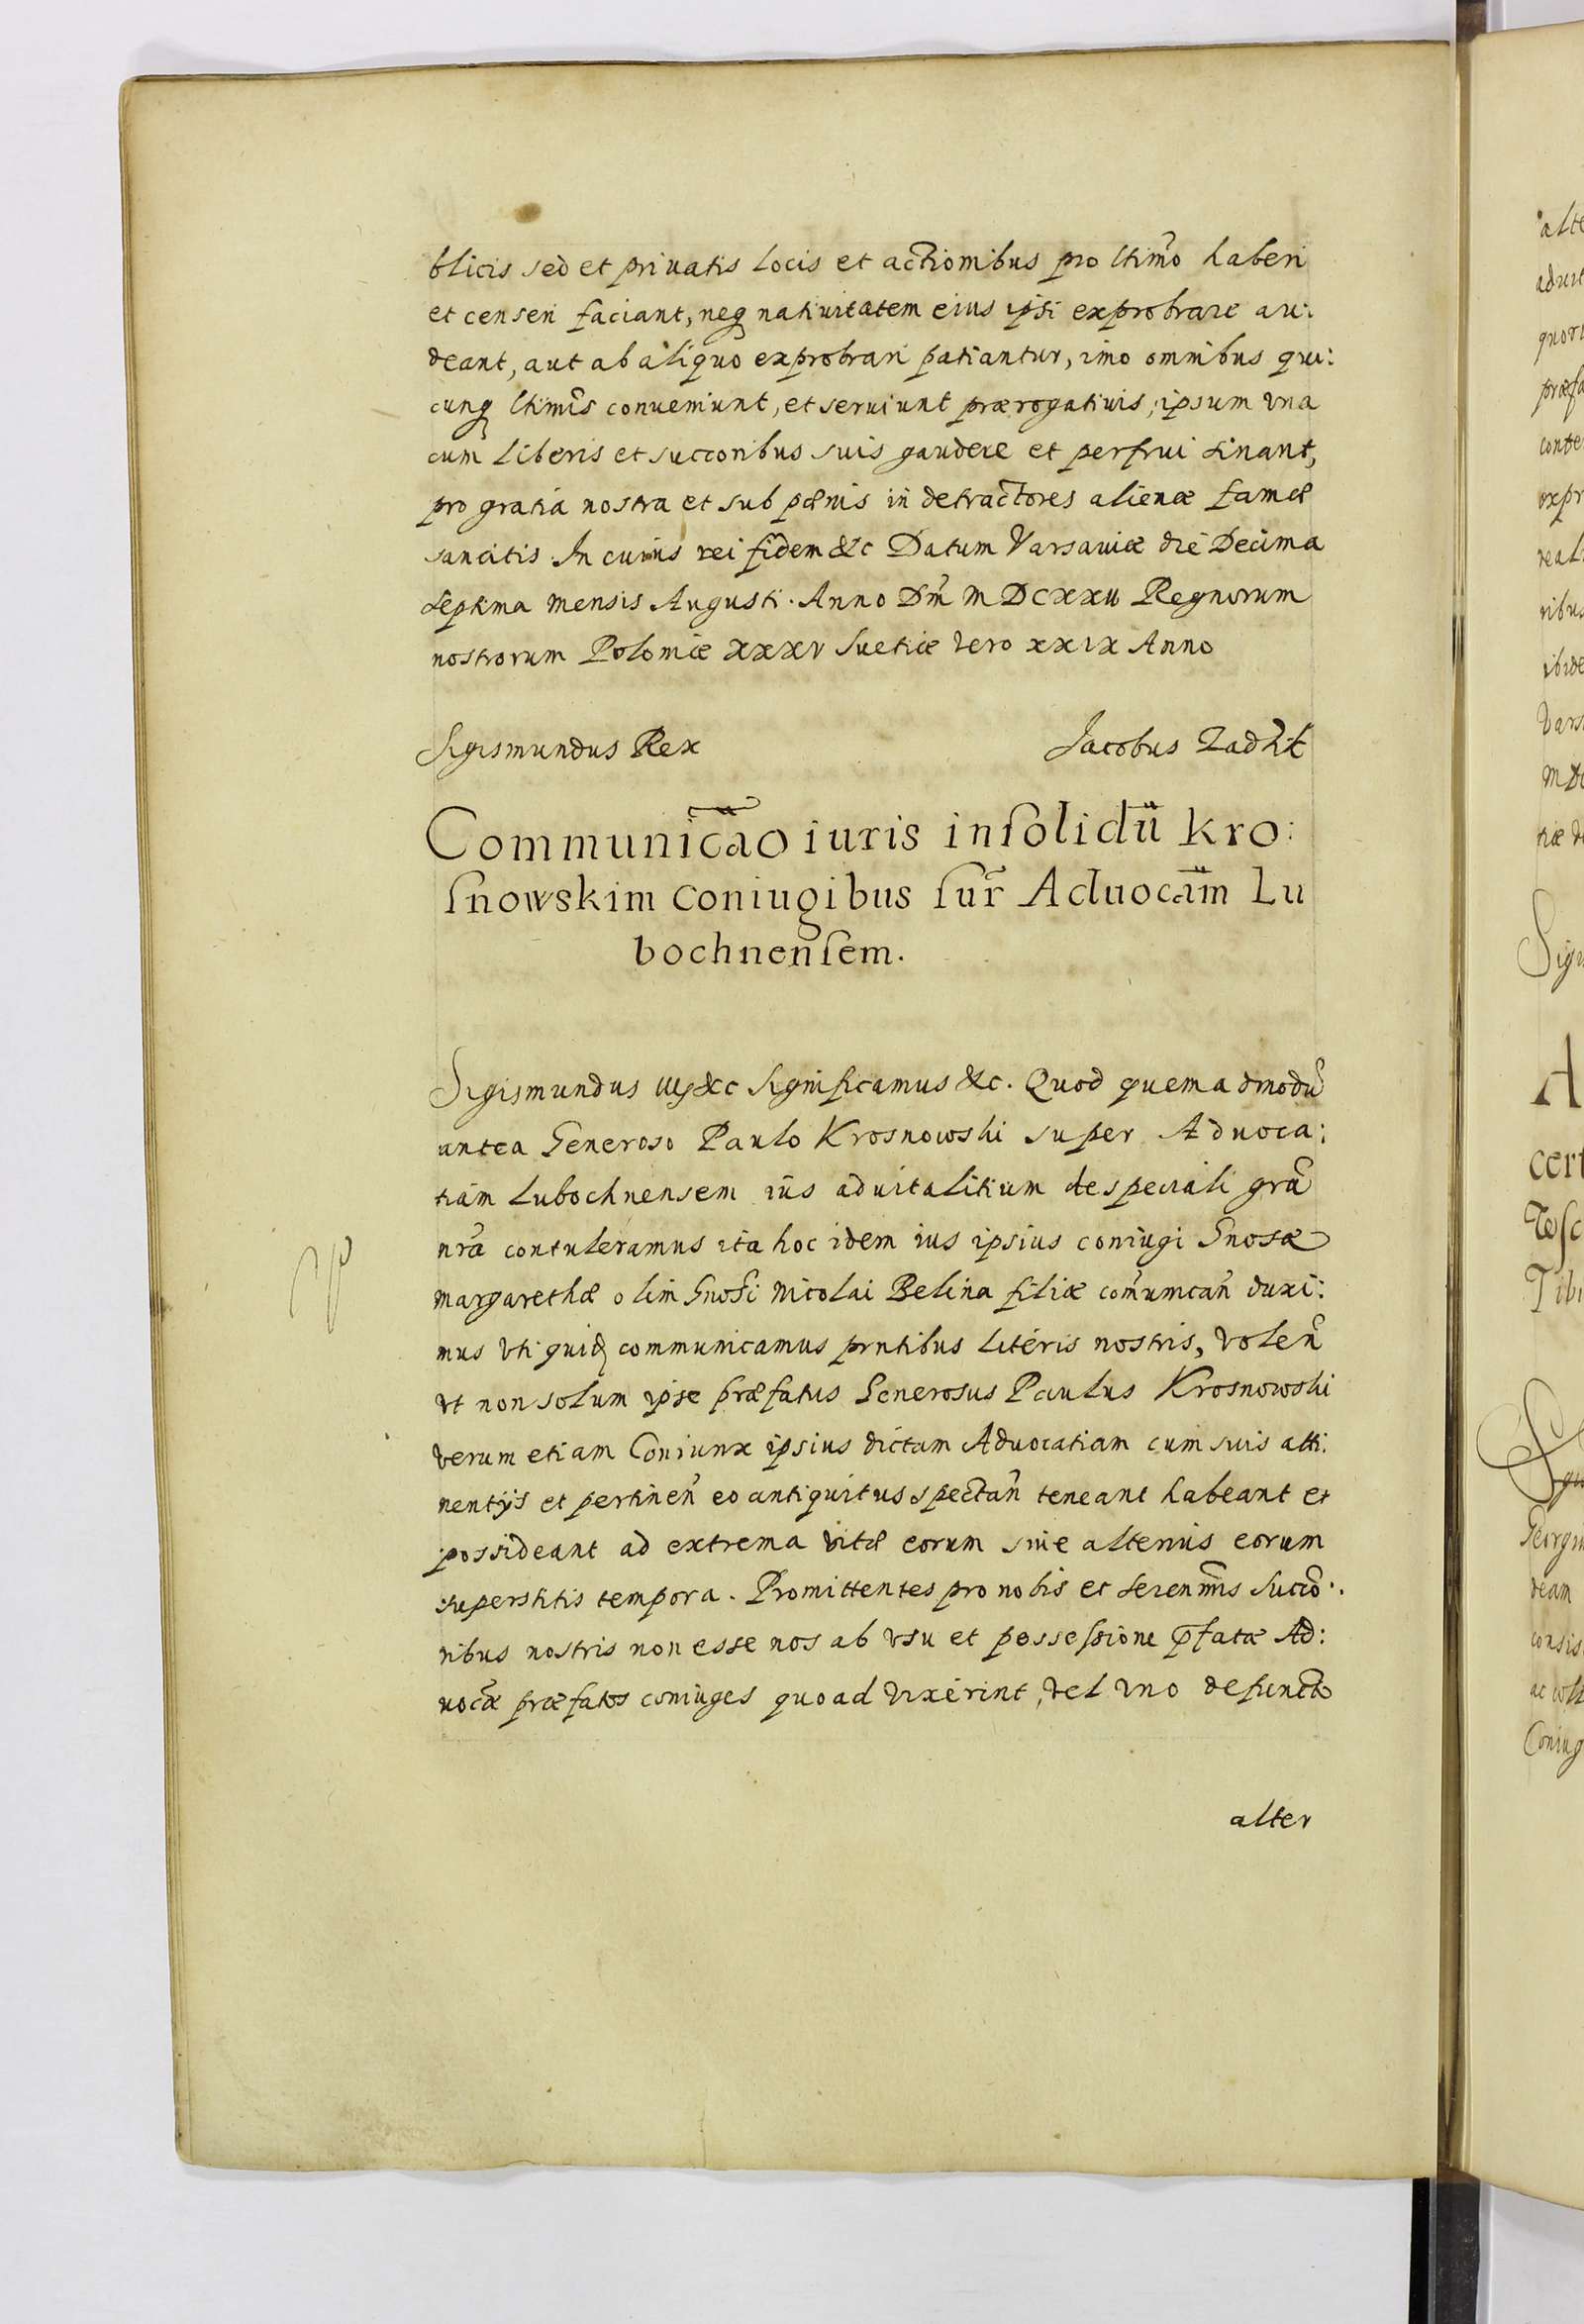 blicis sed et priuatis locis et actionibus pro ltimo haberi
et censeri faciant, neq natiuitatem eius ipsi exprobrare au:
deant, aut ab aliquo exprobrari patiantur, imo omnibus qui:
cunq ltimis conueniunt, et seruiunt prærogatiuis, ipsum vna
cum liberis et succoribus suis gaudere et perfrui sinant,
pro gratia nostra et sub pœnis in detractores alienæ famæ
sancitis. In cuius rei fidem &c Datum Varsauiæ die Decima
septima mensis Augusti. Anno Dm̃ MDCXXII Regnorum
nostrorum Poloniæ XXXV Suetiæ vero XXIX Anno
Sigismundus Rex Jacobus Zadzik
Communicãao iuris insolidũ Kro:
snowskim Coniugibus sur̃ Aduocãm Lu
bochnensem.
Sigismundus IIIs &c Significamus &c. Quod quemadmodũ
antea Generoso Paulo Krosnowski super Aduoca:
tiam Lubochnensem ius aduitalitium de speciali grã
nrã contuleramus ita hoc idem ius ipsius coniugi Gnosæ
Margarethæ olim Gnosi Nicolai Belina filiæ com̃unican̄ duxi:
mus vti quidȩ communicamus prntibus literis nostris, volen̄
vt non solum ipse præfatus Generosus Paulus Krosnowski
verum etiam Coniunx ipsius dictam Aduocatiam cum suis atti:
nentijs et pertinen̄ eo antiquitus spectan̄ teneant habeant et
possideant ad extrema vitæ eorum siue alterius eorum
superstitis tempora. Promittentes pro nobis et Serenm̃is Succo:
ribus nostris non esse nos ab vsu et possessione p̄fatæ Ad:
uocæ præfatos coniuges quoad vixerint, vel vno defuncto
alter